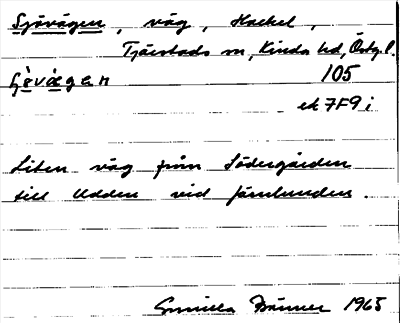 Sjövägen, väg, Hackel,
Tjärstads sn, Kinda hd, Östg l.
105
ek 7F9i
Liten väg från Södergården
till Udden vid Järnlunden.
Gunilla Bränner 1965